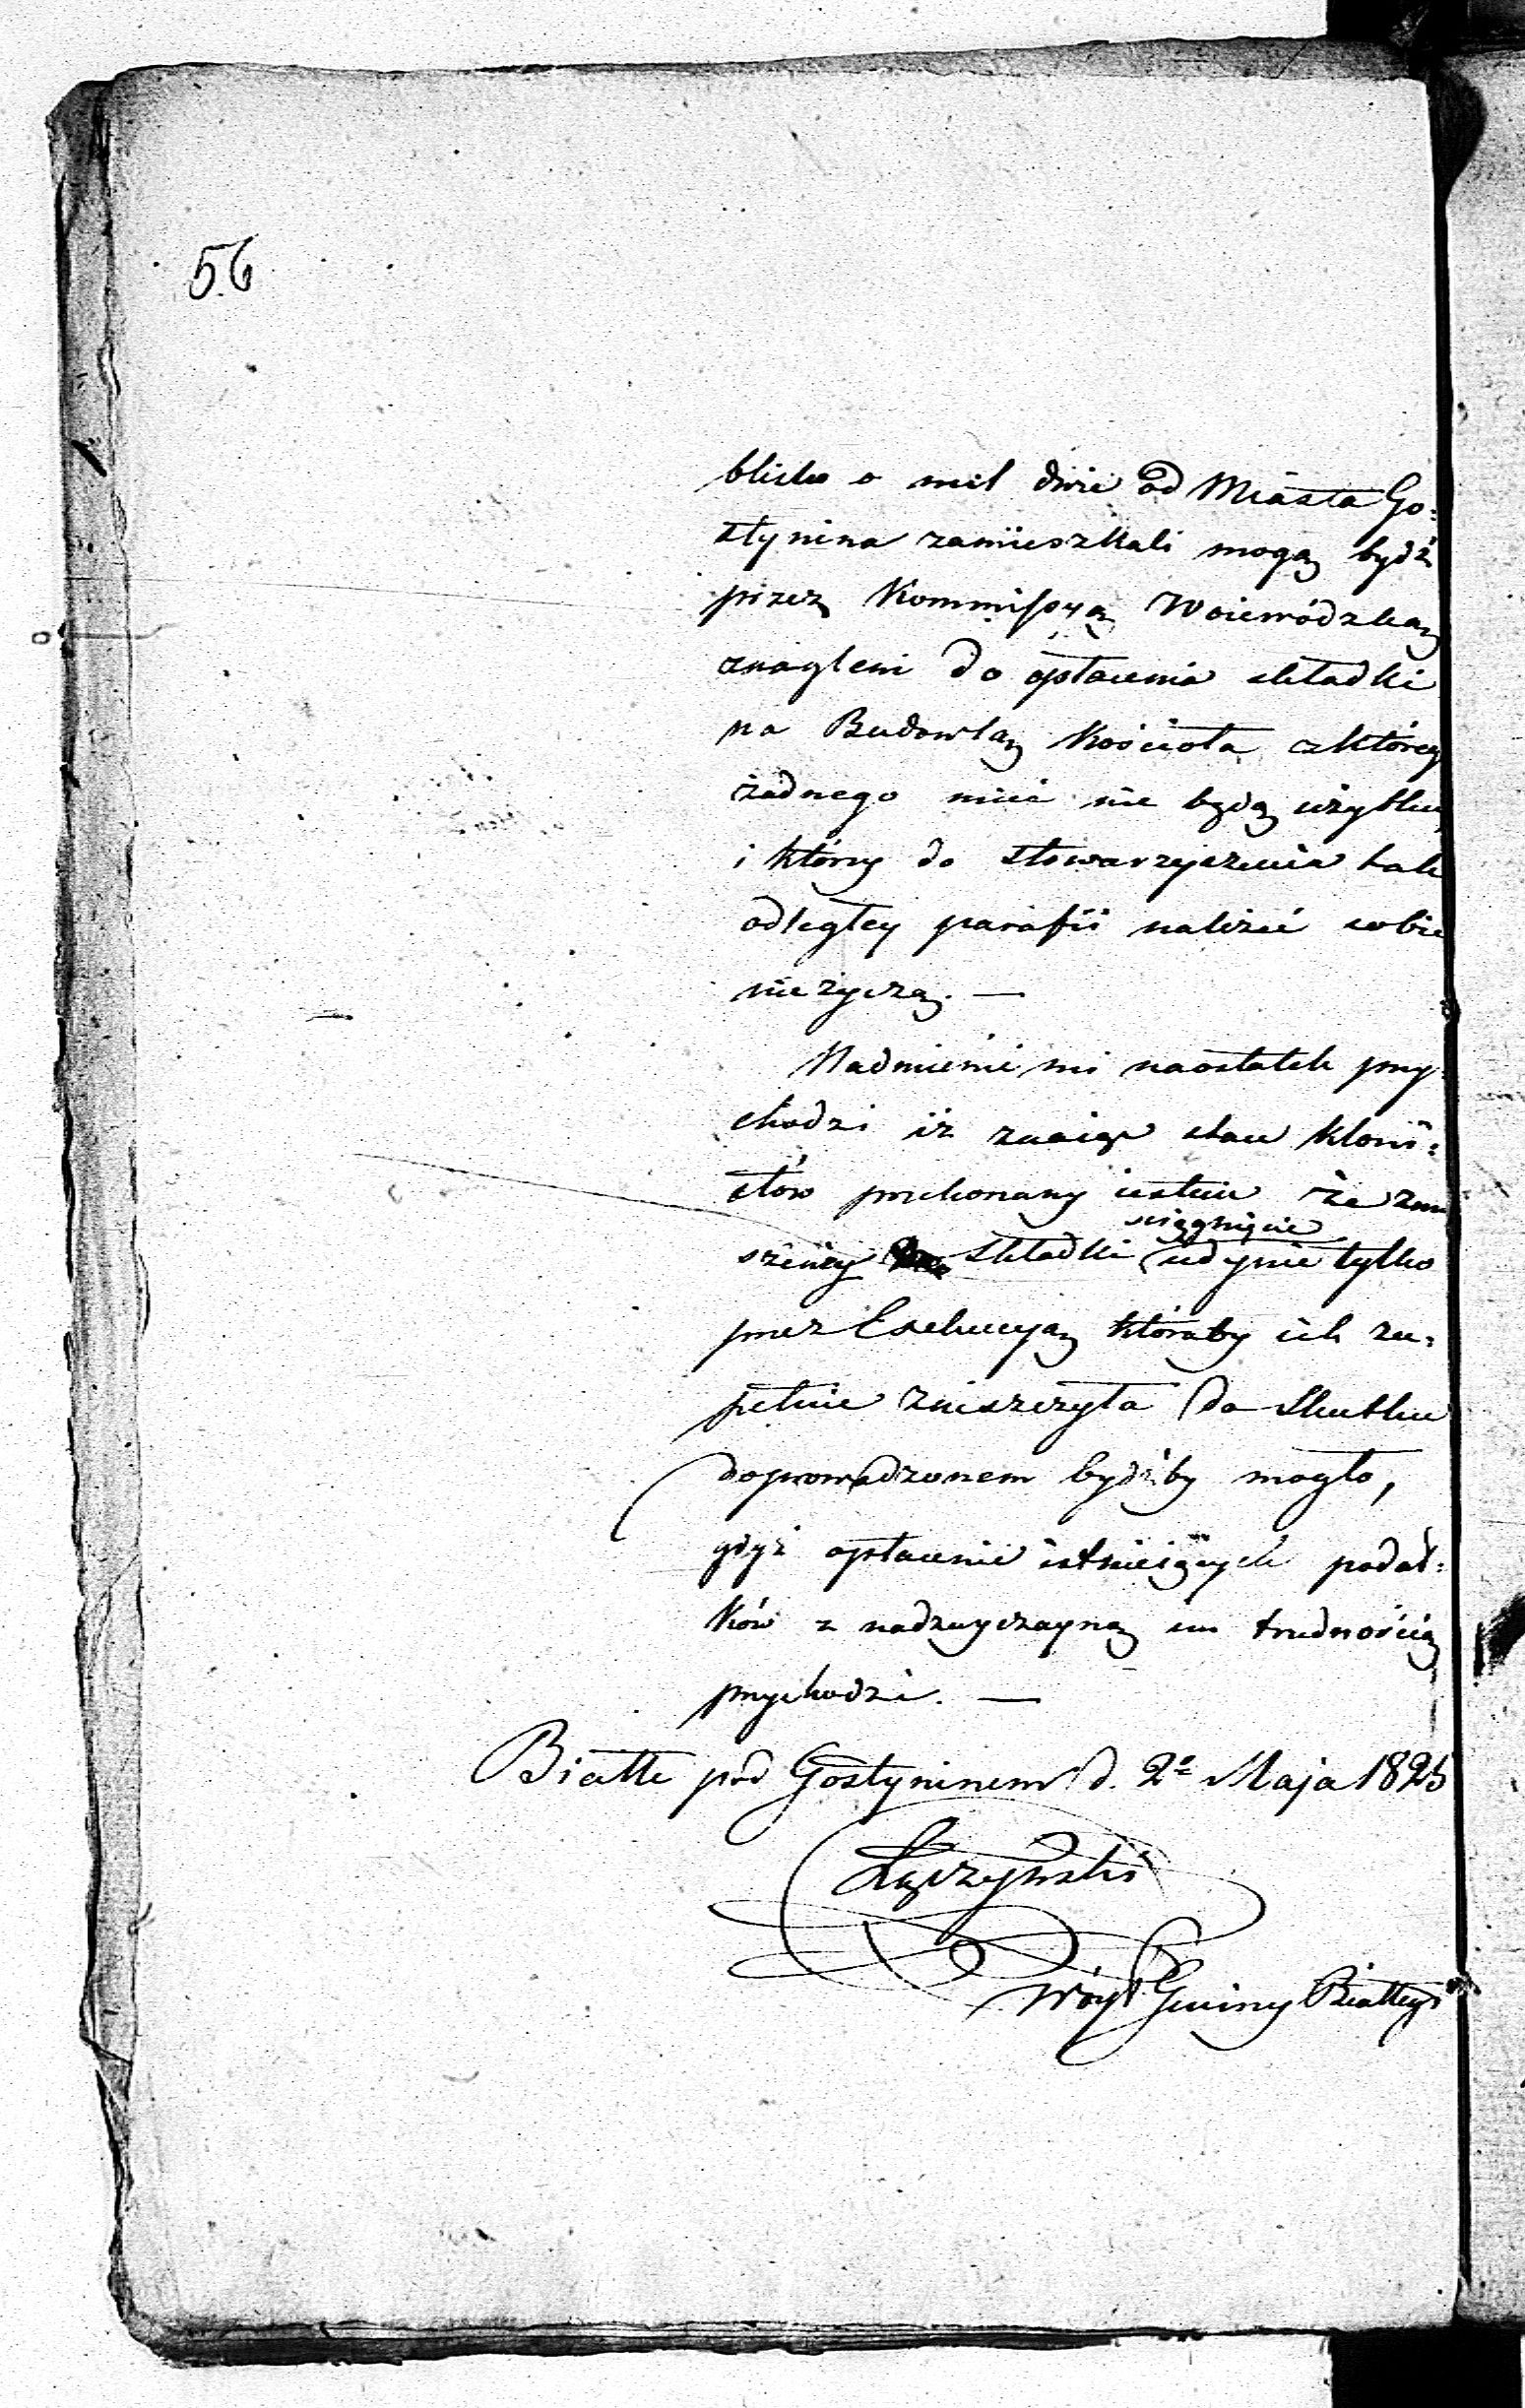 56
blisko o mil dwie od Miasta Go:
stynina zamieszkali mogą bydź
przez Kommissyą Woiewódzką
znagleni do opłacenia składki
na Budowlą Kościoła z którey
żadnego mieć nie będą użytku
i którzy do stowarzyszenia tak
odległey parafii należeć sobie
nie życzą. —
Nadmienić mi naostatek przy
chodzi iż znaiąc stan Kloni:
stów przekonany iestem że zmu
szeney składki ściągnięcie iedynie tylko
przez Exekucyą któraby ich zu:
pełnie zniszczyła do skutku
doprowadzonem bydźby mogło,
gdyż opłacenie istnieiących podat:
ków z nadzwyczayną im trudnością
przychodzi. —
Białle pod Gostyninem d. 2º Maja 1825
Łączyński
Wóyt Gminy Białley